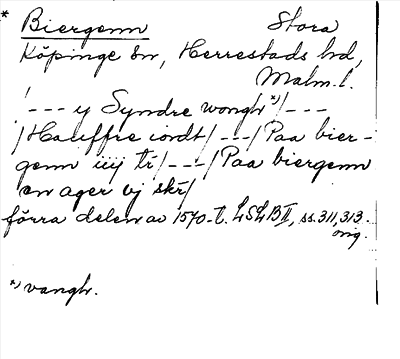 * Biergenn Stora
Köpinge sn, Herrestads hd,
Malm. l.
/--- y Syndre wongh *)/---
/Hauffre iordt/---/Paa bier-
genn iiij tr/---/Paa biergenn
en ager vj skr/
förra delen av 1570-t. LSLB II, ss. 311, 313.
orig.
*) vangh.